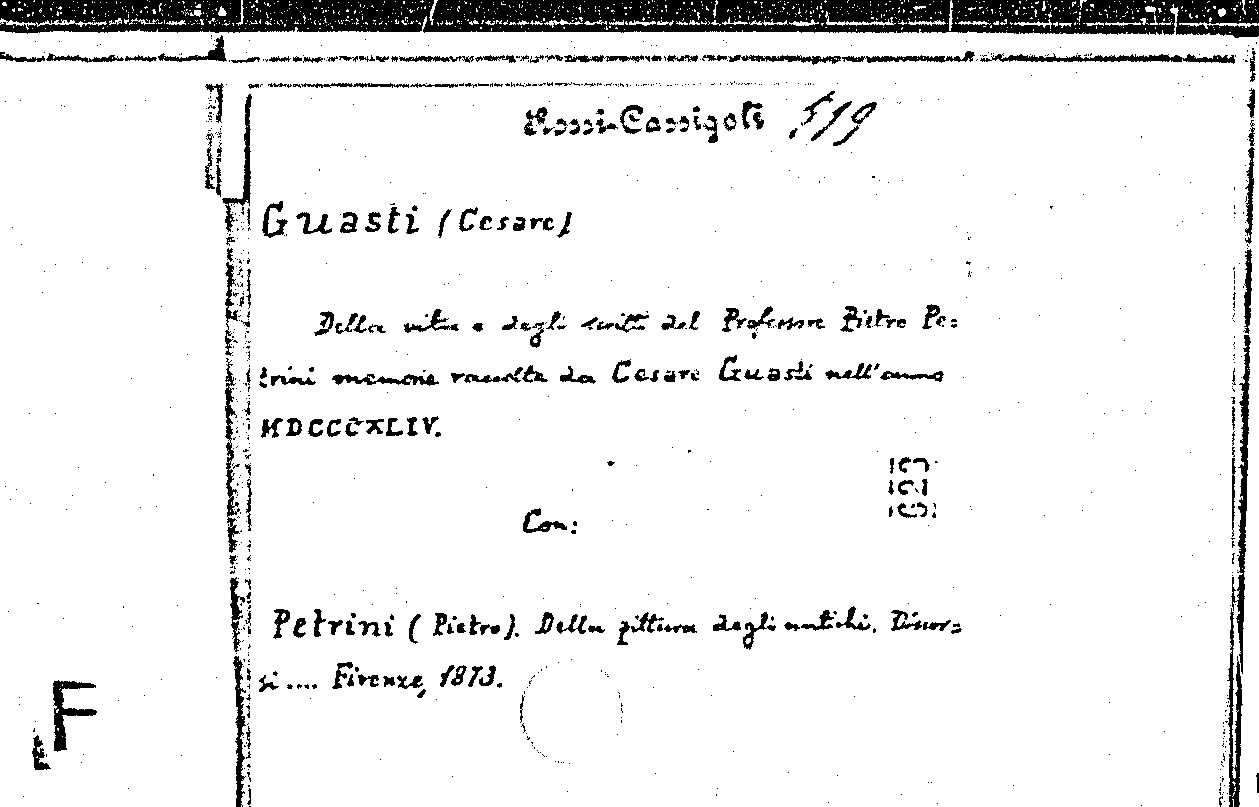 Rossi-Cassigoli 519
Guasti (Cesare)
Della vita e degli scritti del Professore Pietro Pe=
trini memorie raccolte da Cesare Guasti nell'anno
MDCCCXLIV.
Con:
Petrini (Pietro). Della pittura degli antichi. Discor=
si .... Firenze, 1873.
F